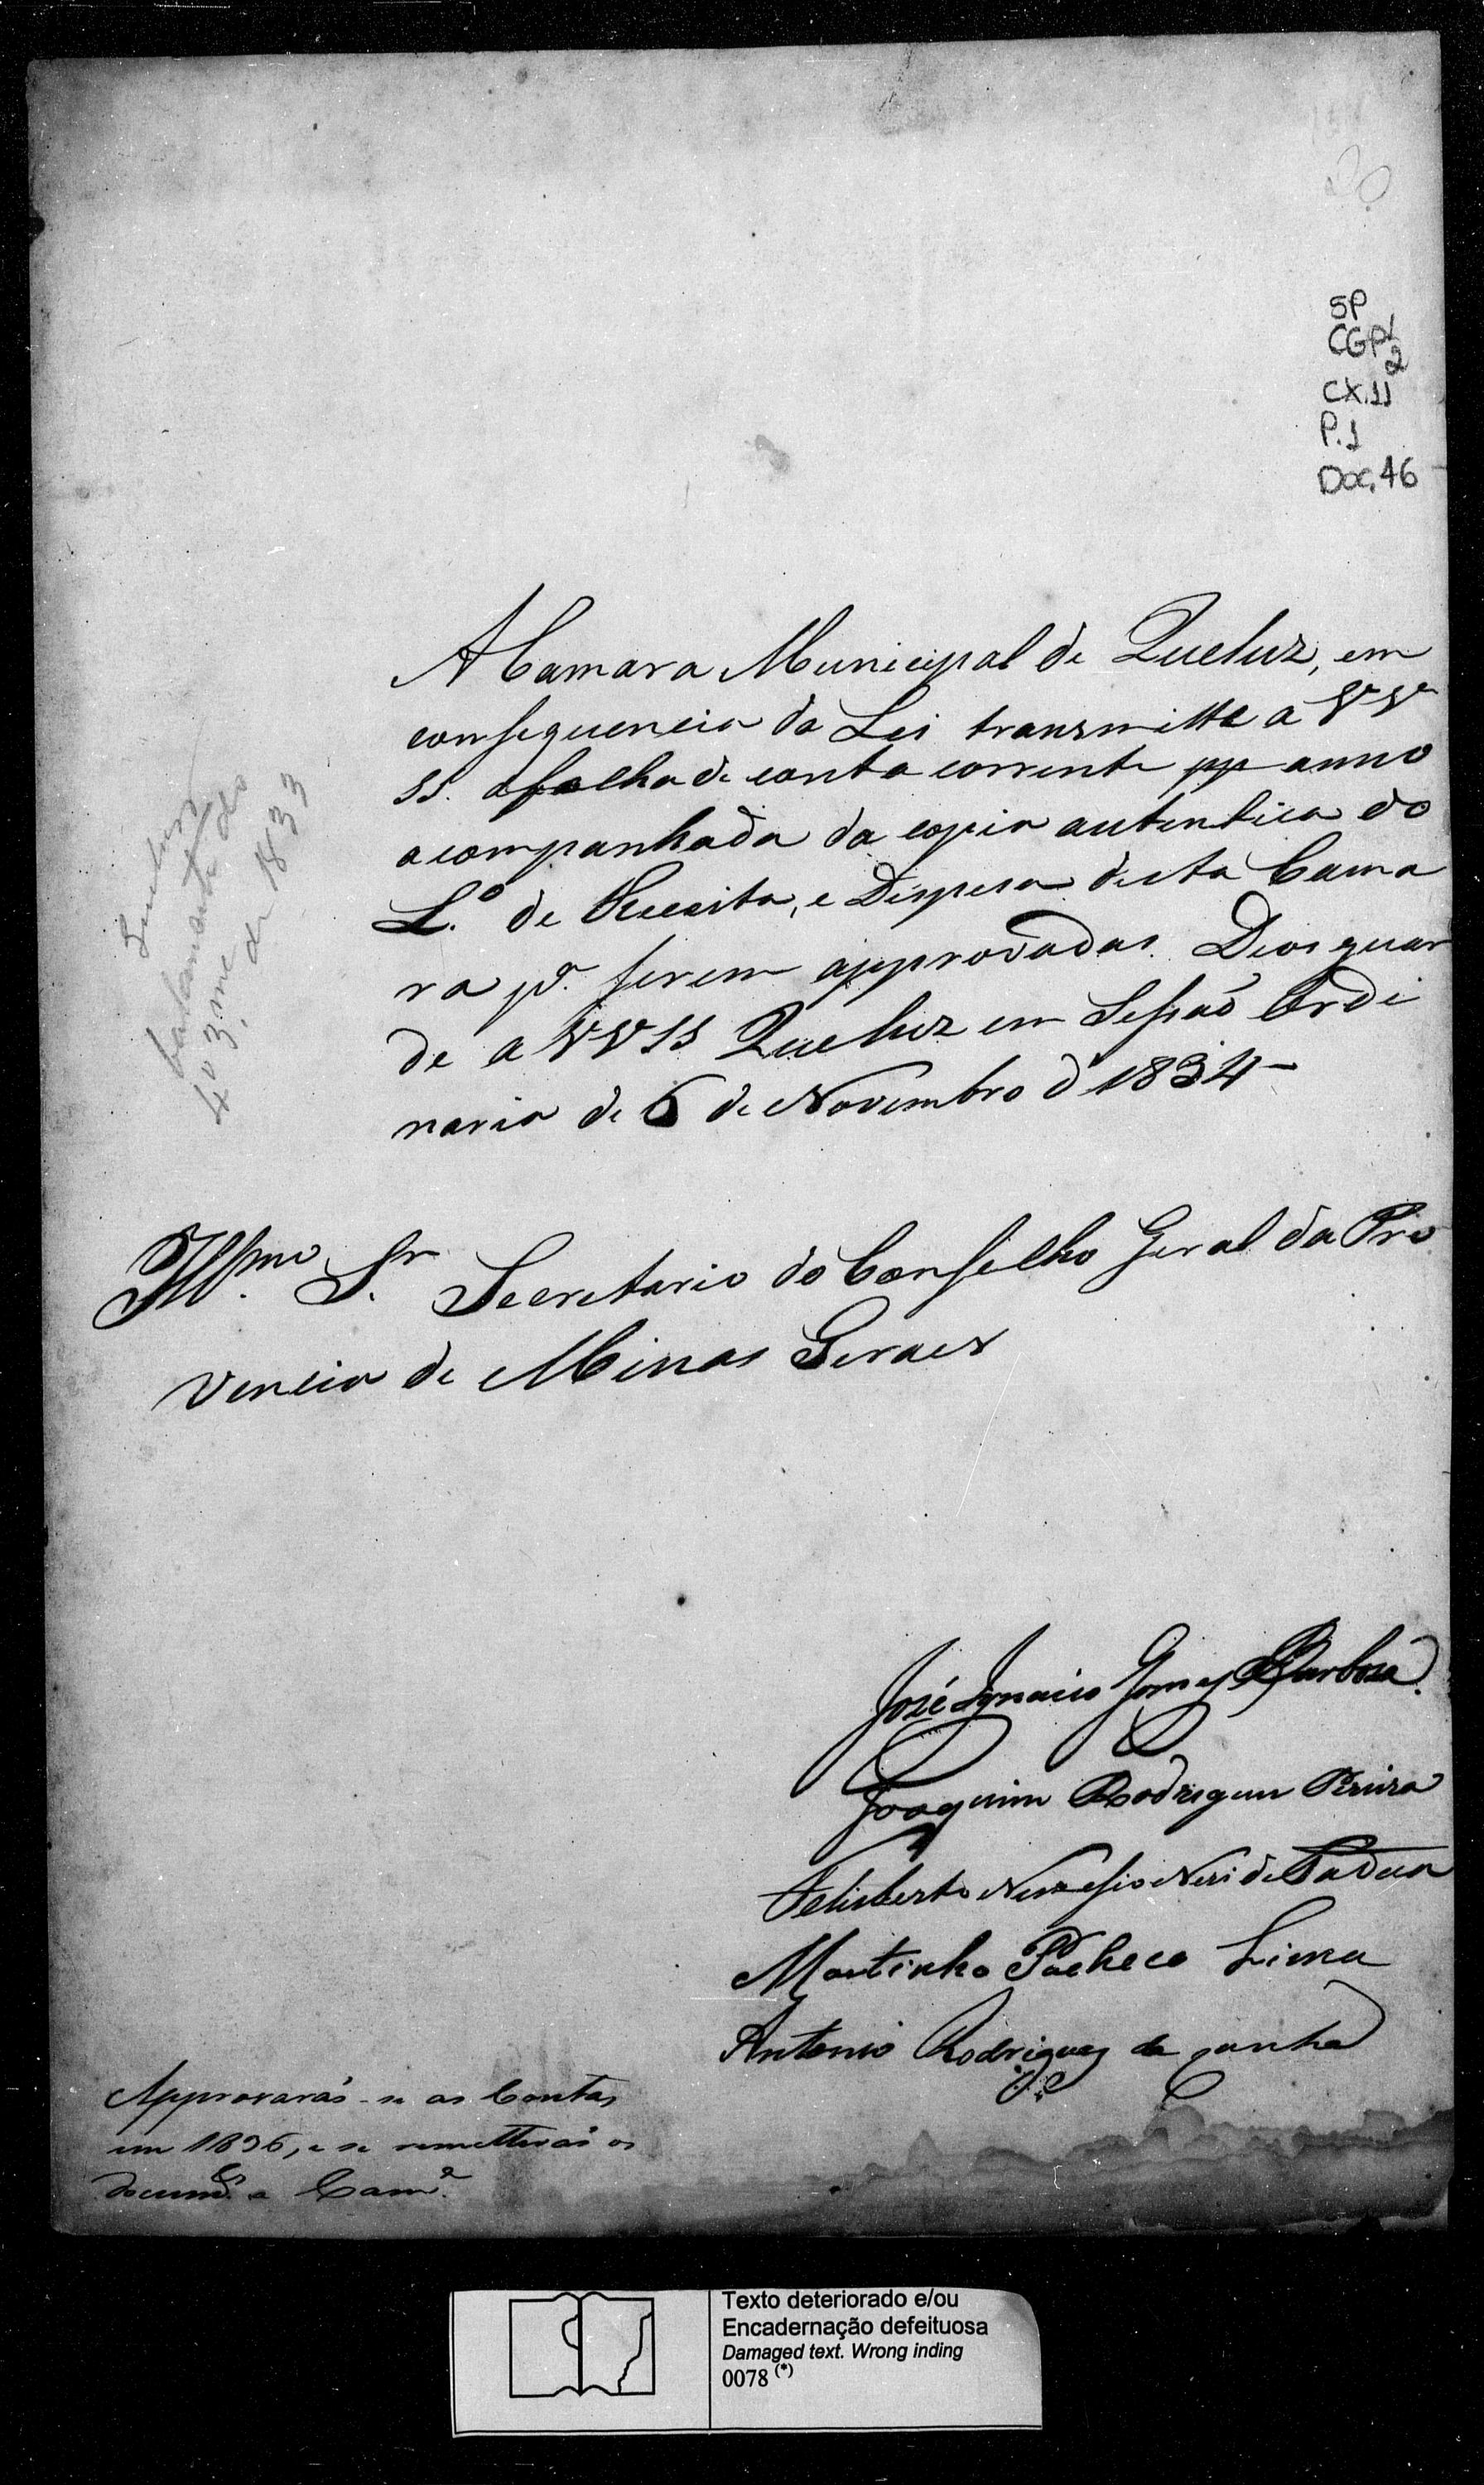 20
SP
CGP1/2
CX.11
P.1
Doc.46
A Camara Municipal de Queluz, em
consequencia da Lei transmitte a VV
SS. a folha de conta corrente pp anno
acompanhada da copia autentica do
L.º de Receita, e Despesa desta Cama
ra pª. serem approvadas. Deos guar
de a VVSS Queluz em Sessaõ Ordi
naria de 6 de Novembro d 1834
balancate do
4º 3.me de 1833
Illmo. Sr. Secretario do Conselho Geral da Pro
vencia de Minas Geraes
José Ignacio Gomes Barbosa.
Joaquim Rodrigues Pereira
Felisberto Nemesio Neri de Padua
Martinho Pacheco Lima
Antonio Rodriguez da cunha
Approvaraõ-se as Contas
em 1836, e se remetteraõ os
documtos. a Camª.
Texto deteriorado e/ou
Encadernação defeituosa
Damaged text. Wrong inding
0078 (*)